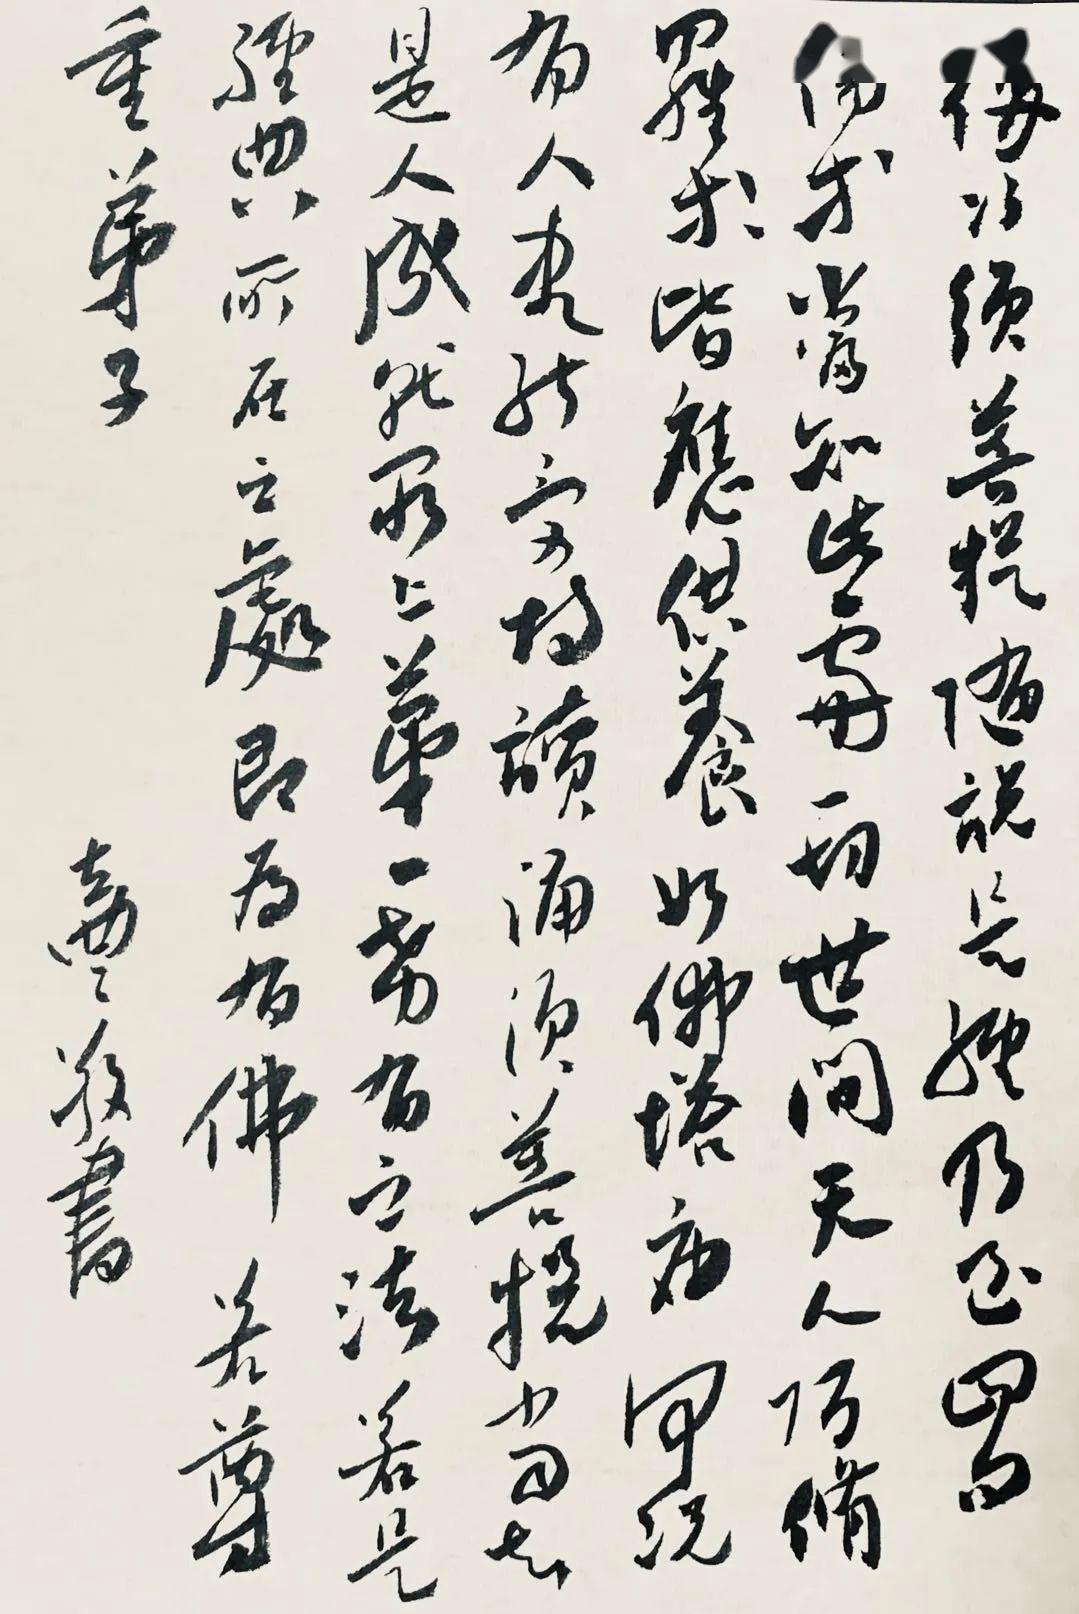 復次須菩提隨說是經乃至四句
偈等當知此處一切世間天人阿修
羅等皆應供養如佛塔廟何況
有人盡能受持讀誦須菩提當知
是人成就最上第一希有之法若是
經典所在之處即為有佛若尊
重弟子
敬書